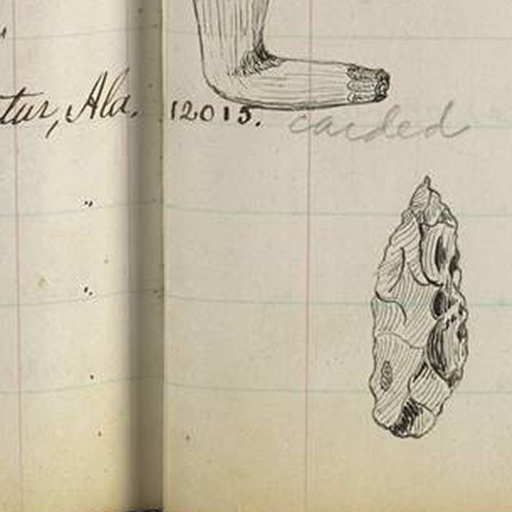 tur, Ala. 12015. carded
"
"